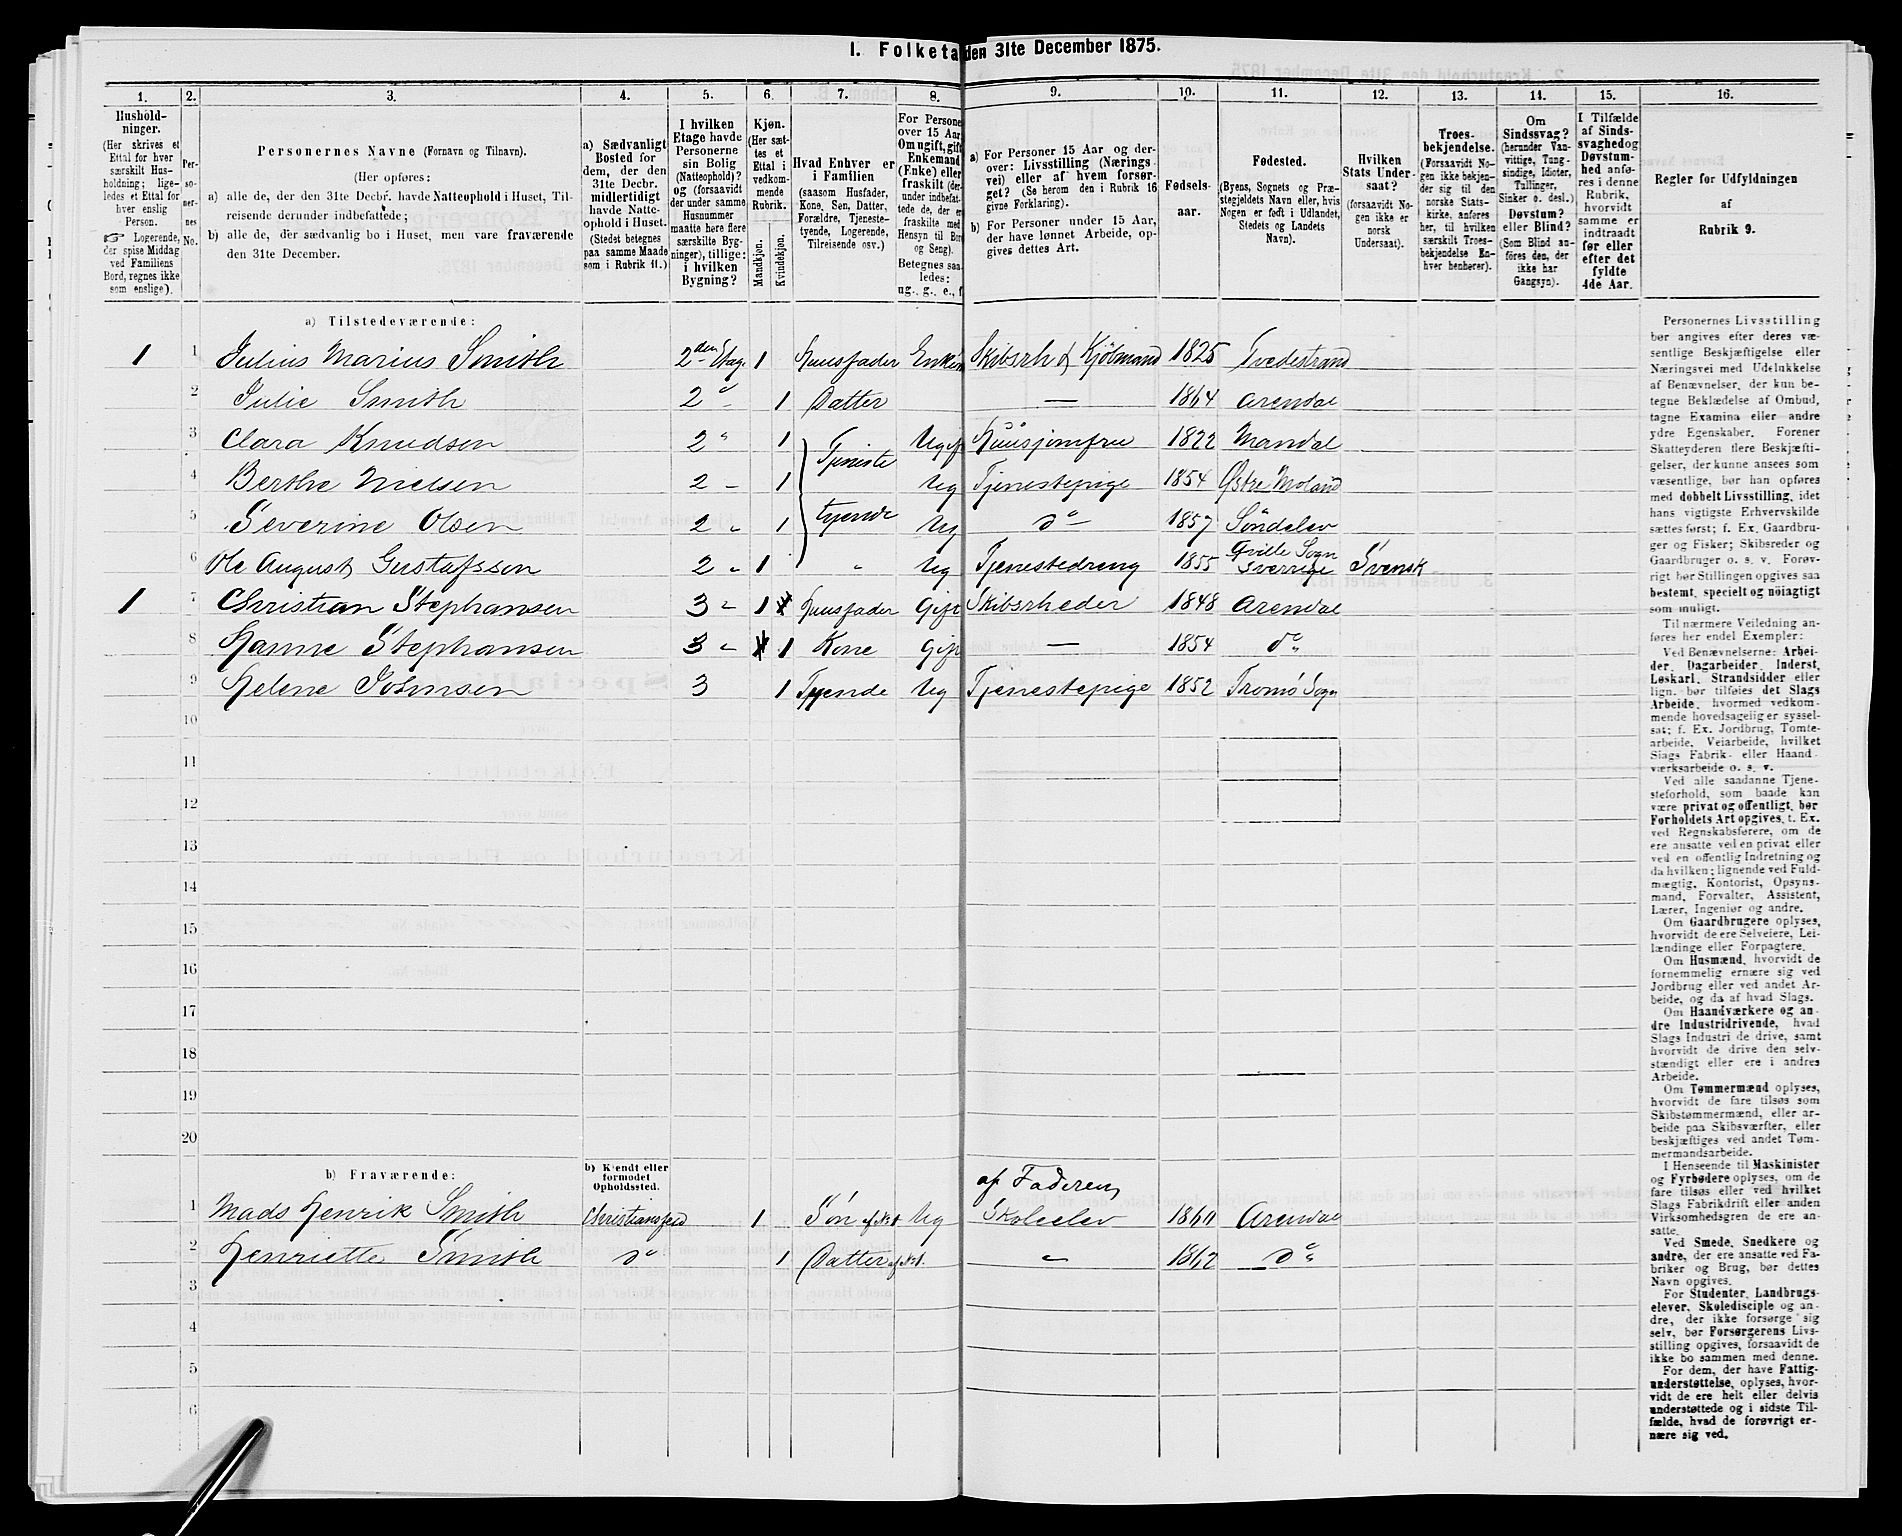 I. Folketa den 31te December 1875.
1. 2. 3. 4. 5. 6. 7. 8. 9. 10. 11. 12. 13. 14. 15. 16.
Hushold-
ninger.
(Her skrives et
Ettal for hver
særskilt Hus-
holdning; lige-
ledes et Ettal for
hver enslig
Person.
☞ Logerende,
der spise Middag
ved Familiens
Bord, regnes ikke
som enslige).
Per-
so-
ner-
nes
No.
Personernes Navne (Fornavn og Tilnavn).
(Her opføres:
a) alle de, der den 31te Decbr. havde Natteophold i Huset, Til-
reisende derunder indbefattede;
b) alle de, der sædvanlig bo i Huset, men vare fraværende
den 31te December.
a) Sædvanligt
Bosted for
dem, der den
31te Decbr.
midlertidigt
havde Natte-
ophold i Huset.
(Stedet betegnes
paa samme Maade
som i Rubrik 11.)
I hvilken
Etage havde
Personerne
sin Bolig
(Natteophold)?
og (forsaavidt
der under samme
Husnummer
maatte høre flere
særskilte Byg-
ninger), tillige:
i hvilken
Bygning?
Kjøn.
(Her sæt-
tes et
Ettal i
vedkom-
mende
Rubrik.
Mandkjøn.
Kvindekjøn.
Hvad Enhver er
i Familien
(saasom Husfader,
Kone, Søn, Datter,
Forældre, Tjeneste-
tyende, Logerende,
Tilreisende osv.)
For Persone
over 15 Aar
Om ugift, gift
Enkemand
(Enke) eller
fraskilt (der-
under indbefat-
tede de, der er
fraskilte med
Hensyn til Bor
og Seng).
Betegnes saa-
ledes:
ug., g., e., f
a) For Personer 15 Aar og der-
over: Livsstilling (Nærings-
vei) eller af hvem forsør-
get? (Se herom den i Rubrik 16
givne Forklaring).
b) For Personer under 15 Aar,
der have lønnet Arbeide, op-
gives dettes Art.
Fødsels-
aar.
Fødested.
(Byens, Sognets og Præ-
stegjeldets Navn eller, hvis
Nogen er født i Udlandet,
Stedets og Landets
Navn).
Hvilken
Stats Under-
saat?
(forsaavidt No-
gen ikke er
norsk
Undersaat).
Troes-
bekjendelse.
(Forsaavidt No-
gen ikke bekjen-
der sig til den
norske Stats-
kirke, anføres
her, til hvilken
særskilt Troes-
bekjendelse En-
hver henhører).
Om
Sindssvag?
(herunder Van-
vittige, Tung-
sindige, Idioter,
Tullinger,
Sinker o. desl.)
Døvstum?
eller Blind?
(Som Blind an-
føres den, der
ikke har
Gangsyn).
I Tilfælde
af Sinds-
svaghed og
Døvstum-
hed anfø-
res i denne
Rubrik,
hvorvidt
samme er
indtraadt
før eller
efter det
fyldte
4de Aar.
Regler for Udfyldningen
af
Rubrik 9.
a) Tilstedeværende:
1 1 Julius Marius Smith 2den Etag. 1 Huusfader Enkem Skibsrh & Kjøbmand 1825 Tvedestrand
2 Julie Smith 2 " 1 Datter — 1864 Arendal
3 Clara Knudsen 2 " 1 Tjeneste Ugift Huusjomfru 1822 Mandal
4 Berthe Nielsen 2 – 1 Ug Tjenestepige 1854 Østre Moland
5 Severine Olsen 2 " 1 tyende Ug do 1857 Söndelev
6 Ole August Gustafsson 2 " 1 " Ug Tjenestedreng 1855 Qville Sogn Sverrige Svensk
1 7 Christian Stephansen 3 – 1 Huusfader Gift Skibsrheder 1848 Arendal
8 Hanne Stephansen 3 – 1 Kone Gift — 1854 do
9 Helene Johnsen 3 1 Tyende Ug Tjenestepige 1852 Tromö Sogn
10
11
12
13
14
15
16
17
18
19
20
b) Fraværende:
b) Kjendt eller
formodet
Opholdssted.
af Faderen
1 Mads Henrik Smith Christiansfeld 1 Søn af No 1 Ug Skoleelev 1860 Arendal
2 Henriette Smith do 1 Datter af No 1. " 1862 do
3
4
5
6
Personernes Livsstilling
bør angives efter deres væ-
sentlige Beskjæftigelse eller
Næringsvei med Udelukkelse
af Benævnelser, der kun be-
tegne Beklædelse af Ombud,
tagne Examina eller andre
ydre Egenskaber. Forener
Skatteyderen flere Beskjæfti-
gelser, der kunne ansees som
væsentlige, bør han opføres
med dobbelt Livsstilling, idet
hans vigtigste Erhvervskilde
sættes først; f. Ex. Gaardbru-
ger og Fisker; Skibsreder og
Gaardbruger o. s. v. Forøv-
rigt bør Stillingen opgives saa
bestemt, specielt og nøiagtigt
som muligt.
Til nærmere Veiledning an-
føres her endel Exempler:
Ved Benævnelserne: Arbei-
der, Dagarbeider, Inderst,
Løskarl, Strandsidder eller
lign. bør tilføies det Slags
Arbeide, hvormed vedkom-
mende hovedsagelig er syssel-
sat; f. Ex. Jordbrug, Tomte-
arbeide, Veiarbeide, hvilket
Slags Fabrik- eller Haand-
værksarbeide o. s. v.
Ved alle saadanne Tjene-
steforhold, som baade kan
være privat og offentligt, bør
Forholdets Art opgives, t. Ex.
ved Regnskabsførere, om de
ere ansatte ved en privat eller
ved en offentlig Indretning og
da hvilken; lignende ved Fuld-
mægtig, Kontorist, Opsyns-
mand, Forvalter, Assistent,
Lærer, Ingeniør og andre.
Om Gaardbrugere oplyses,
hvorvidt de ere Selveiere, Lei-
lændinge eller Forpagtere.
Om Husmænd, hvorvidt de
fornemmelig ernære sig ved
Jordbrug eller ved andet Ar-
beide, og da af hvad Slags.
Om Haandværkere og an-
dre Industridrivende, hvad
Slags Industri de drive, samt
hvorvidt de drive den selv-
stændigt eller ere i andres
Arbeide.
Om Tømmermænd oplyses,
hvorvidt de fare tilsøs som
Skibstømmermænd, eller ar-
beide paa Skibsværfter, eller
beskjæftiges ved andet Tøm-
mermandsarbeide.
I Henseende til Maskinister
og Fyrbødere oplyses, om de
fare tilsøs eller ved hvilket
Slags Fabrikdrift eller anden
Virksomhedsgren de ere an-
satte.
Ved Smede, Snedkere og
andre, der ere ansatte ved Fa-
briker og Brug, bør dettes
Navn opgives.
For Studenter, Landbrugs-
elever, Skoledisciple og an-
dre, der ikke forsørge sig
selv, bør Forsørgerens Livs-
stilling opgives, forsaavidt de
ikke bo sammen med denne.
For dem, der have Fattig-
understøttelse, oplyses, hvor-
vidt de ere helt eller delvis
understøttede og i sidste Til-
fælde, hvad de forøvrigt er-
nære sig ved.